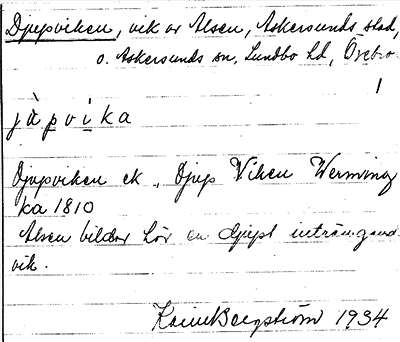 Djupviken, vik av Alsen, Askersunds stad,
o. Askersunds sn, Sundbo hd, Örebro.
1
jùpvìka
Djupviken ek., Djup Viken Werming
ka 1810
Alsen bildar här en djupt inträngand
vik.
Karin Bergström 1934